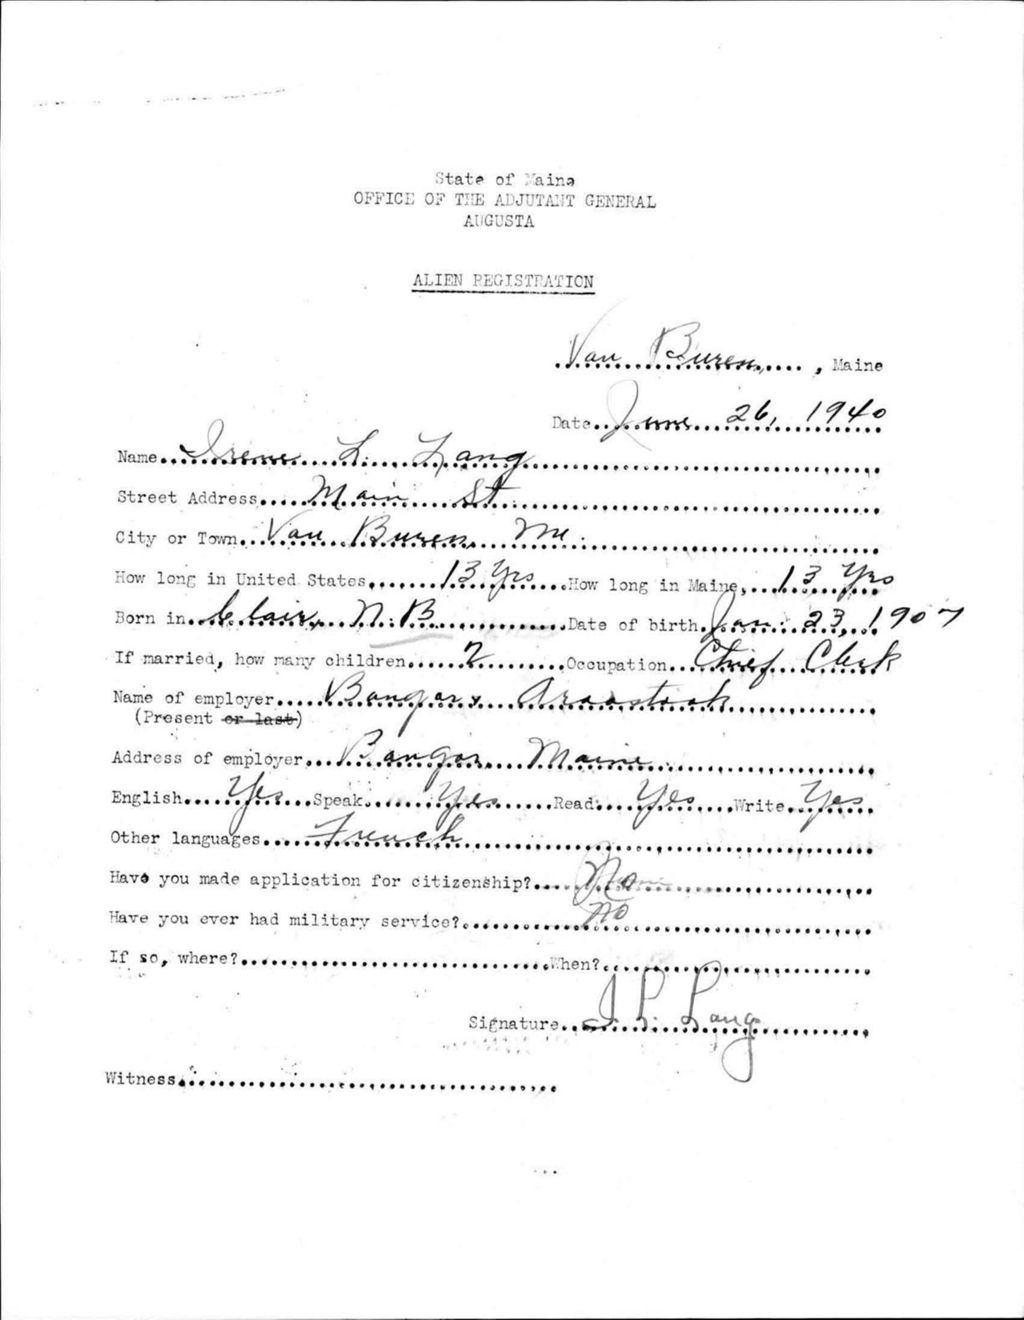 State of Maine
OFFICE OF THE ADJUTANT GENERAL
AUGUSTA
ALIEN REGISTRATION
Van Buren, Maine
Date June 26, 1940
Name Irene L. Lang
Street Address Main St.
City or Town Van Buren Me.
How long in United States 13 Yrs How long in Maine, 13 Yrs
Born in Clair, N.B. Date of birth Jan. 23, 1907
If married, how many children 2 Occupation Chief Clerk
Name of employer Bangor & Aroostook
(Present or last)
Address of employer Bangor Maine
English Yes Speak Yes Read Yes Write Yes
Other languages French
Have you made application for citizenship? No
Have you ever had military service? no
If so, where? When?
Signature I. L. Lang
Witness